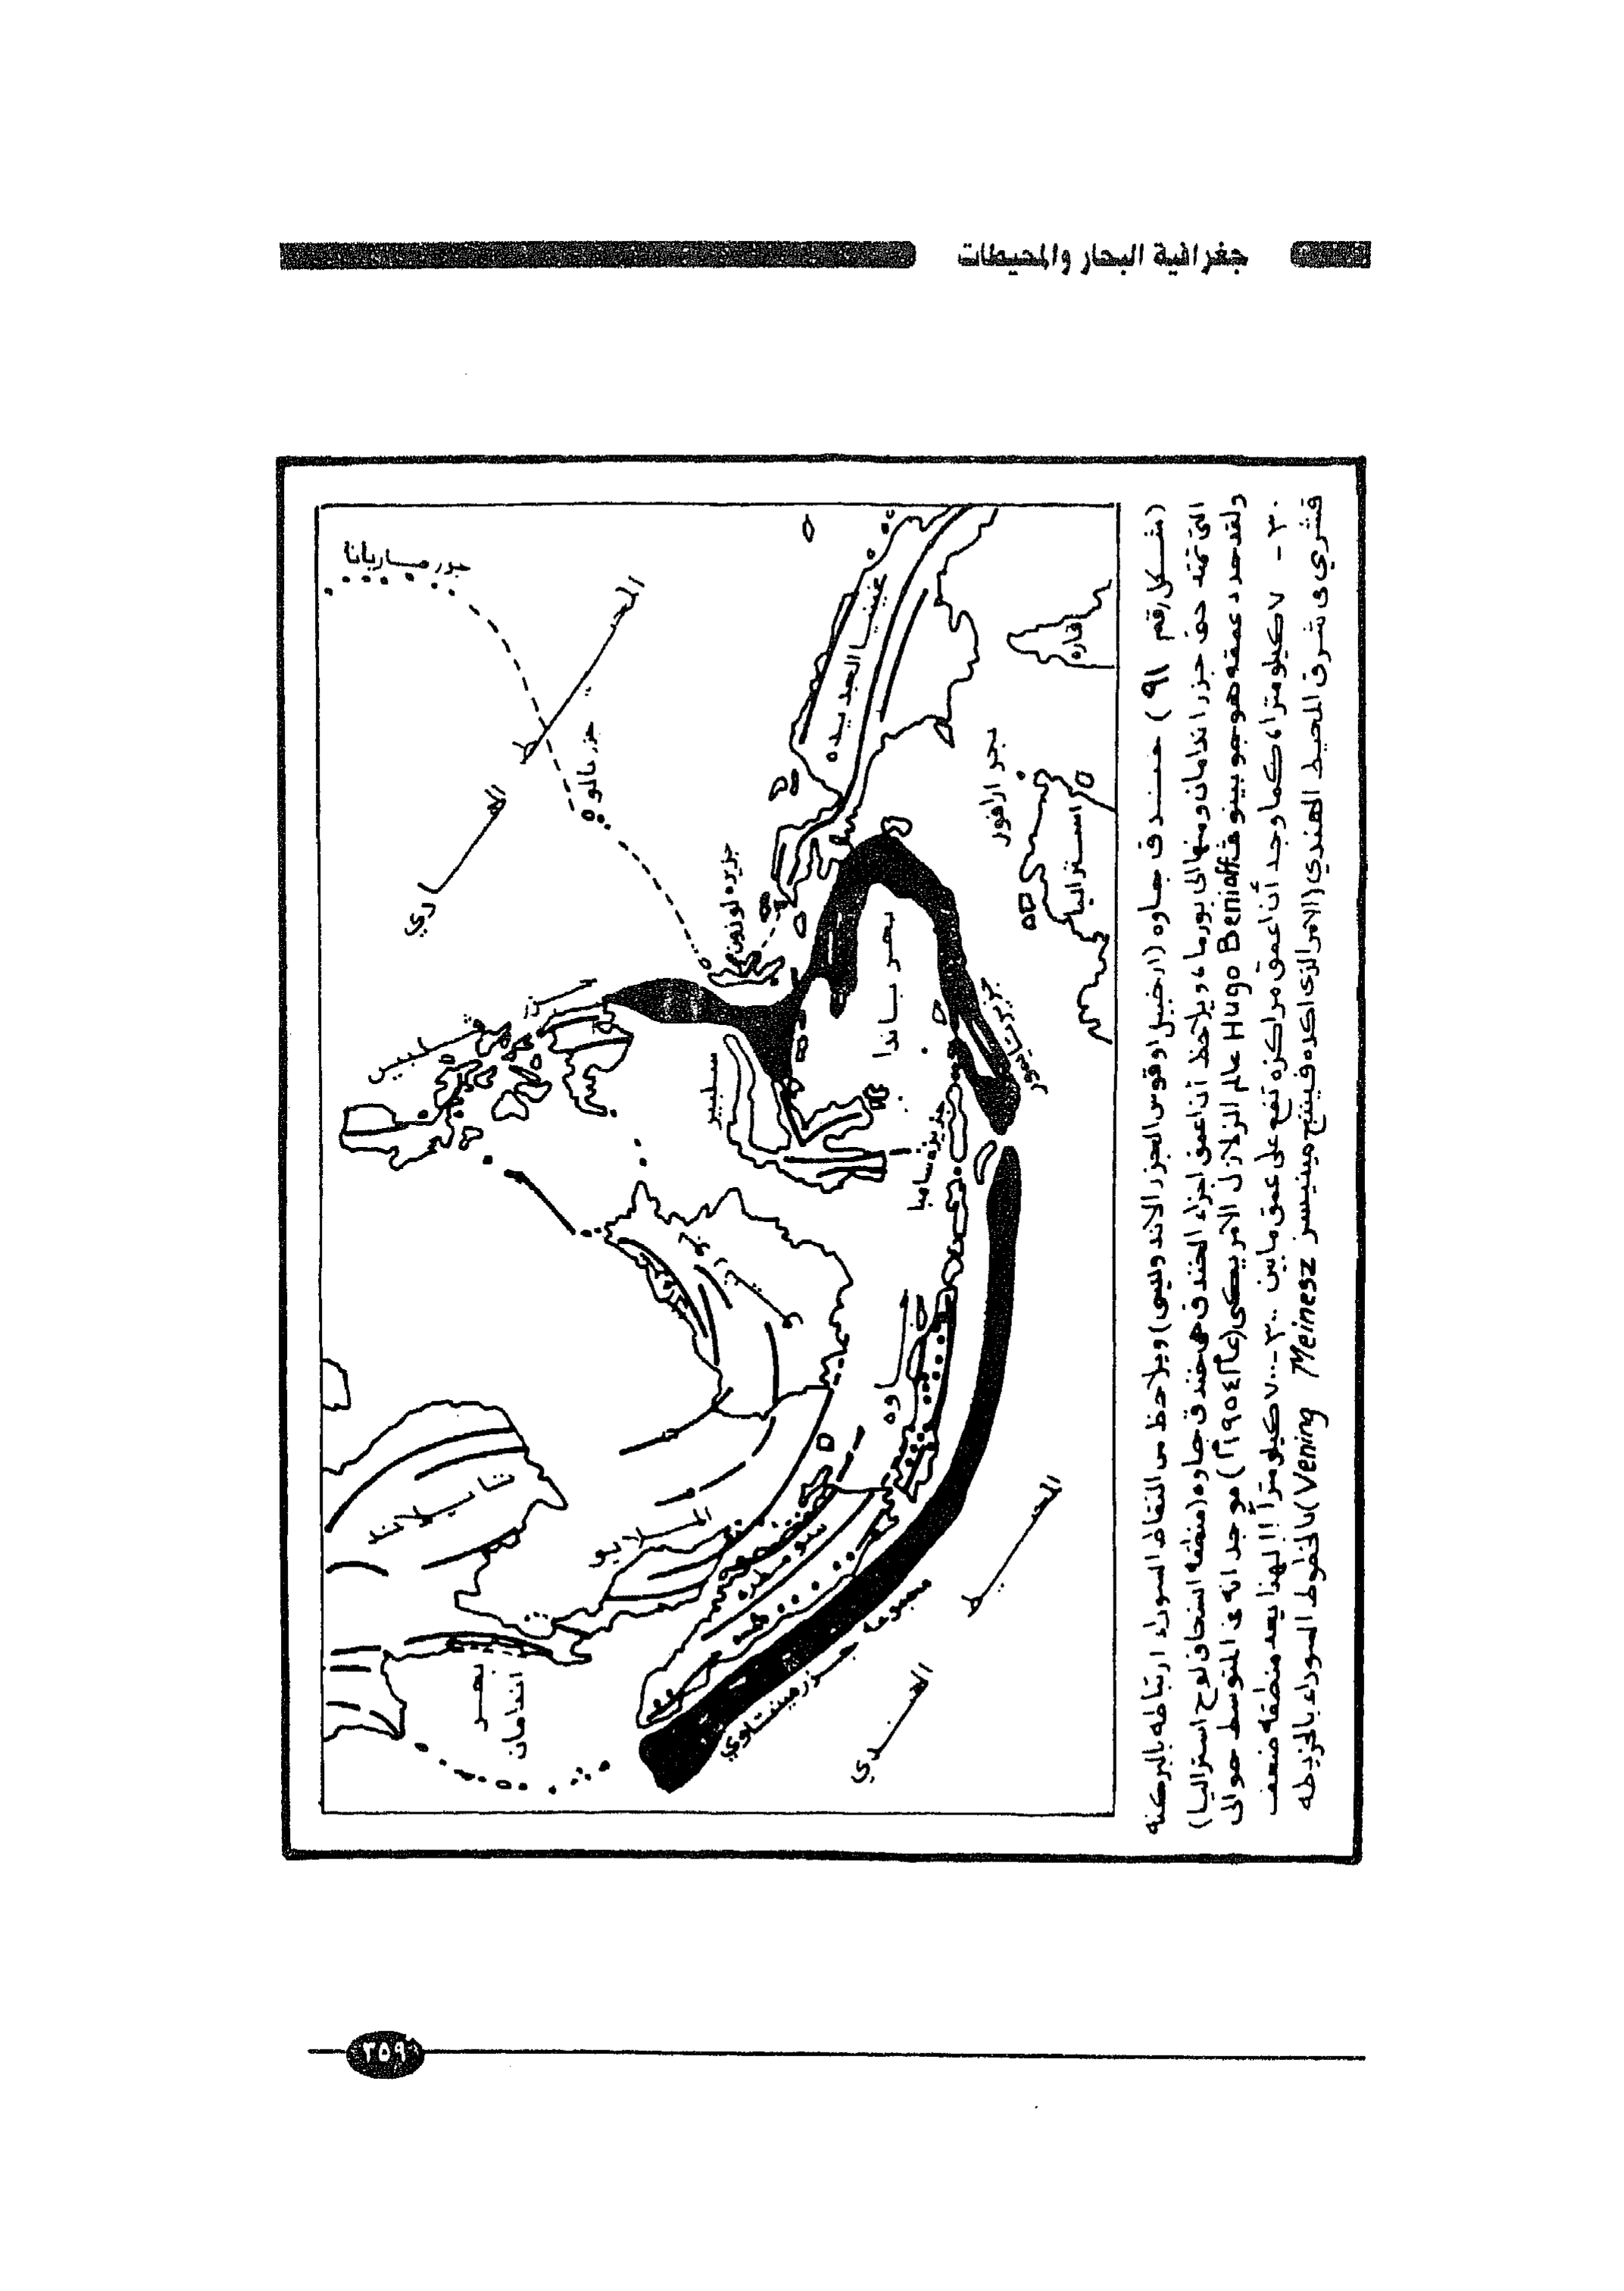 جغرافية البحار والمحيطات
جزر ماريانا
المحيط
الهادي
جزر بالو
غينيا الجديده
قاره
استراليا
بحر ارافور
جزيره لوزون
الفلبين
سليبز
بحر باندا
جزيرة تيمور
جزيره سامبا
جاوه
تايلاند
الملايو
سومطره
بحر
اندامان
مجموعة جزر مينتاوي
المحيط
الهندي
(شكل رقم ٩١) خندق جاوه (ارخبيل او قوس الجزر الاندونيسى) ويلاحظ من النقاط السوداء ارتباطه بالبركنه
التى تمتد حتى جزر اندامان ومنها الى بورما، ويلاحظ أن اعمق اجزاء الخندق هى خندق جاوه (منطقه انتحاء لوح استراليا)
ولقد حدد عمقه هوجو بينوف Hugo Benioff عالم الزلازل الامريكى (عام ١٩٥٤م) موجد انه فى المتوسط حوالى
٣٠ - ٧٠ كيلو مترا، كما وجد أن اعمق مراكزه تقع على عمق مابين ٣٠٠ - ٧٠٠ كيلو متراً !! لهذا يعد منطقه ضعف
قشري فى شرق المحيط الهندي (الامر الذى اكده فيننج مينيسز Vening Meinesz) بالخطوط السوداء بالخريطه
٣٥٩